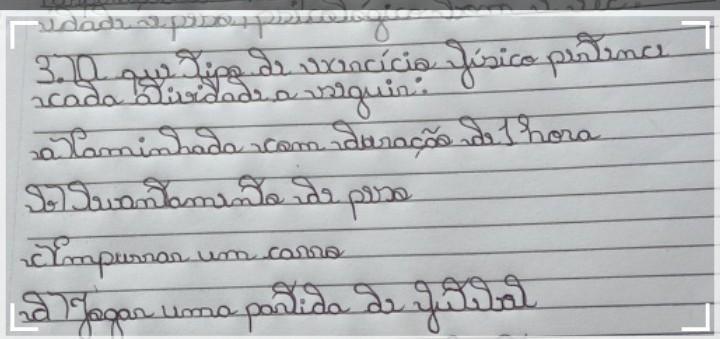 idade e peso, psicológico bom e
3.) A que tipo de exercício físico pertence
cada atividade a seguir:
a) Caminhada com duração de 1 hora
b) Levantamento de peso
c) Empurrar um carro
d) Jogar uma partida de futebol